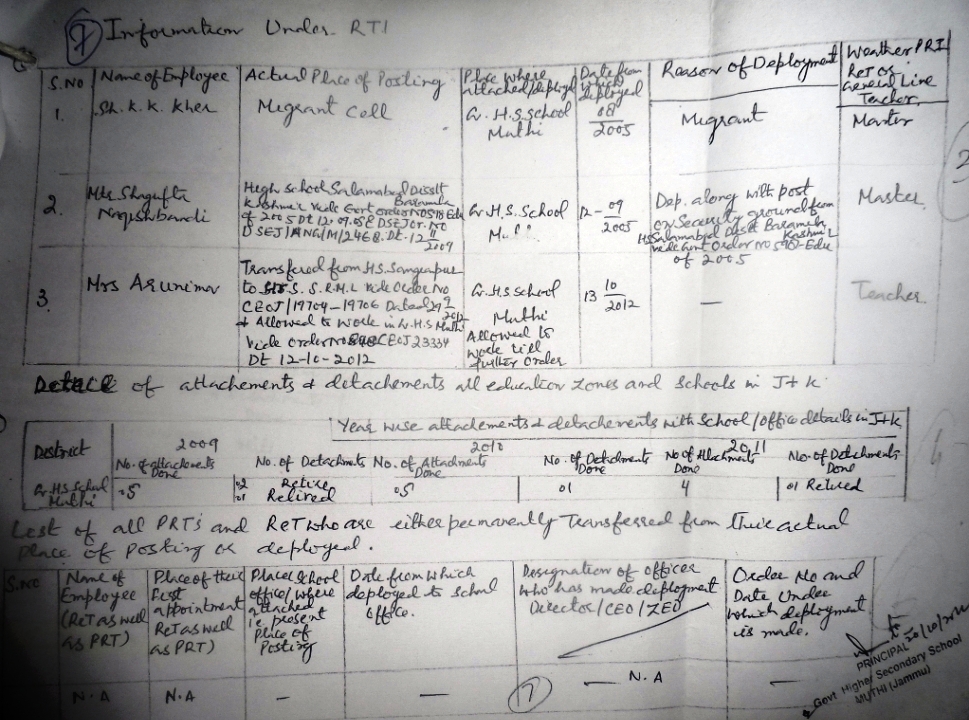 7 Information Under RTI
S.No Name of Employee Actual Place of Posting Place where attached/deployed Date from which deployed Reason of Deployment Weather PRI ReT or General Line Teacher
1. Sh. K. K. Kher Migrant Cell G. H.S. School Muthi 08/2005 Migrant Master
2. Mrs Shagufta Naqishbandi
High School Salamabad Disstt
Baramla
Kashmir vide Govt order No 590 Edu
of 2005 Dt 12-09-05
DSEJ/MNG/M/2468. Dt. 12-11-2009
G. H.S. School
12-09/2005
Dep. along with post
on Security ground from
HS Salamabad Distt Baramula
Kashmir
vide Govt Order No 590-Edu
of 2005
Master
3. Mrs Arunima
Transfered from HS. Sangrapur
to S. S. R.M.L vide order No
CEOJ/19704-19706 Dated 29
2012
& Allowed to work in G.H.S Muthi
vide order No CEOJ 23334
DT 12-10-2012
G. H.S School
Muthi
Allowed to
work till
further order
13 10/2012
—
Teacher
Detail of attachements & detachements all education zones and schools in J+K.
Year wise attachements & detachements with School/office details in J+K
District 2009 2010 2011
No. of attachments Done No. of Detachmts No. of Attachments Done No. of Detachments Done No of Attachments Done No. of Detachments Done
G. H.S School Muthi 05 02 Retire 01 Retired 05 01 4 01 Retired
List of all PRTs and ReT who are either permanently Transferred from their actual
place of posting or deployed.
S.No
Name of Employee (ReT as well as PRT)
Place of their first appointment ReT as well as PRT)
Place/School office/where attached i.e. present Place of Posting
Date from which deployed to School office.
Designation of officer who has made deployment Director/CEO/ZEO
Order No and Date Under which deployment is made.
N.A N.A — — — N.A —
7
PRINCIPAL 20/10/
Govt Higher Secondary School
MUTHI (Jammu)